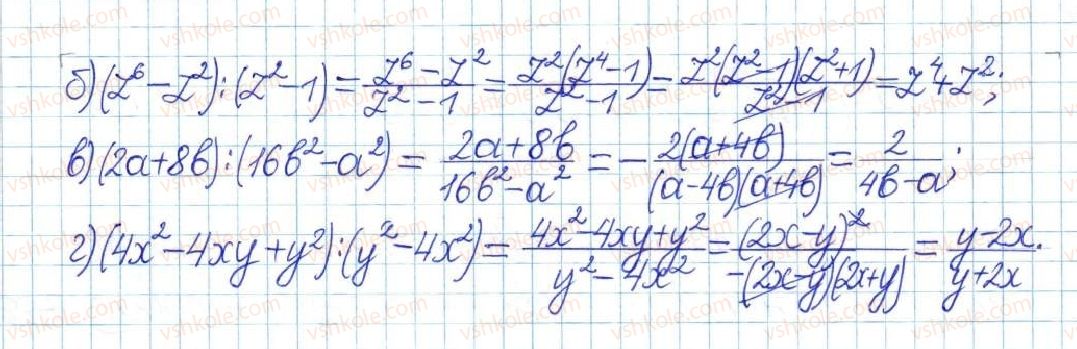 б) (z⁶ − z²) : (z² − 1) = (z⁶ − z²)/(z² − 1) = z²(z⁴ − 1)/(z² − 1) = z²(z² − 1)(z² + 1)/(z² − 1) = z⁴ + z²;
в) (2a + 8b) : (16b² − a²) = (2a + 8b)/(16b² − a²) = − 2(a + 4b)/((a − 4b)(a + 4b)) = 2/(4b − a);
г) (4x² − 4xy + y²) : (y² − 4x²) = (4x² − 4xy + y²)/(y² − 4x²) = (2x − y)²/(−(2x − y)(2x + y)) = (y − 2x)/(y + 2x).